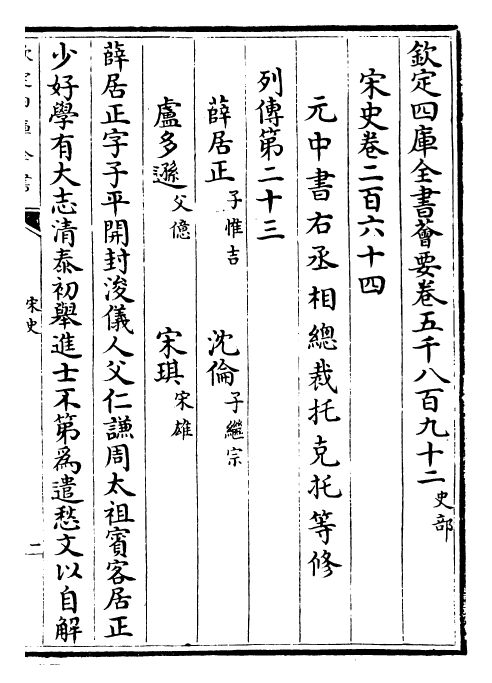 欽定四庫全書薈要卷五千八百九十二史部
宋史卷二百六十四
元中書右丞相總裁托克托等修
列傳第二十三
薛居正子惟吉 沈倫子繼宗
盧多遜父億 宋琪宋雄
薛居正字子平開封浚儀人父仁謙周太祖賓客居正
少好學有大志清泰初舉進士不第為遣愁文以自解
宋史